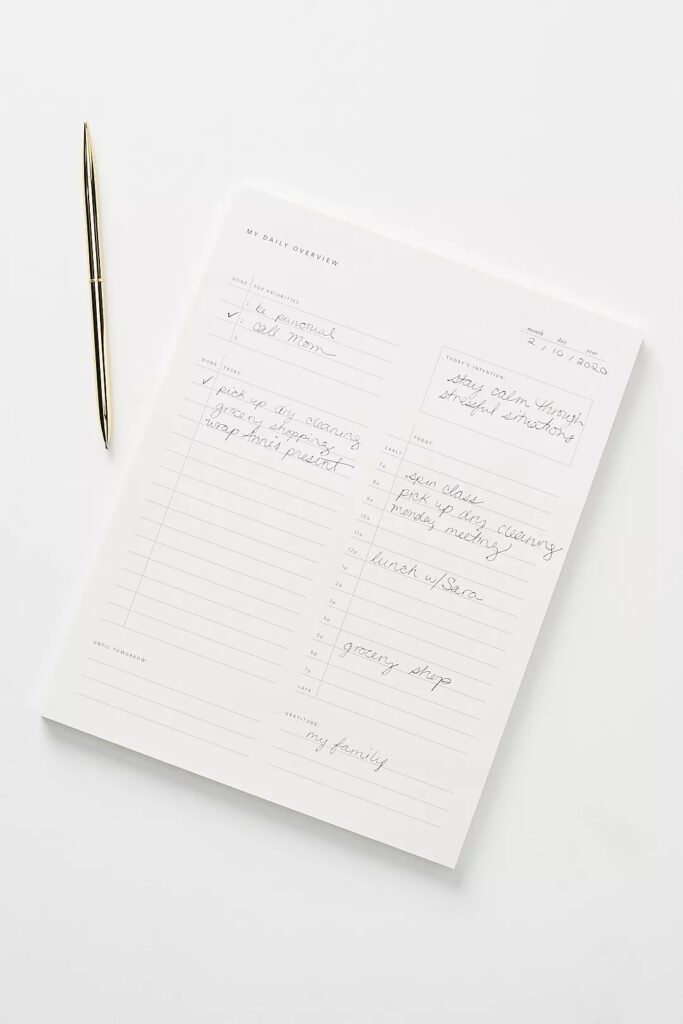 MY DAILY OVERVIEW
month day year
2 / 10 / 2020
DONE TOP PRIORITIES
1. be punctual
✓ 2. call Mom
3.
TODAY'S INTENTION:
stay calm through
stressful situations
DONE TASKS
✓ pick up dry cleaning
grocery shopping
wrap Ann's present
TODAY
EARLY
7a spin class
8a pick up dry cleaning
9a monday meeting
10a
11a
12p lunch w/Sara
1p
2p
3p
4p
5p grocery shop
6p
7p
LATE
UNTIL TOMORROW:
GRATITUDE:
my family